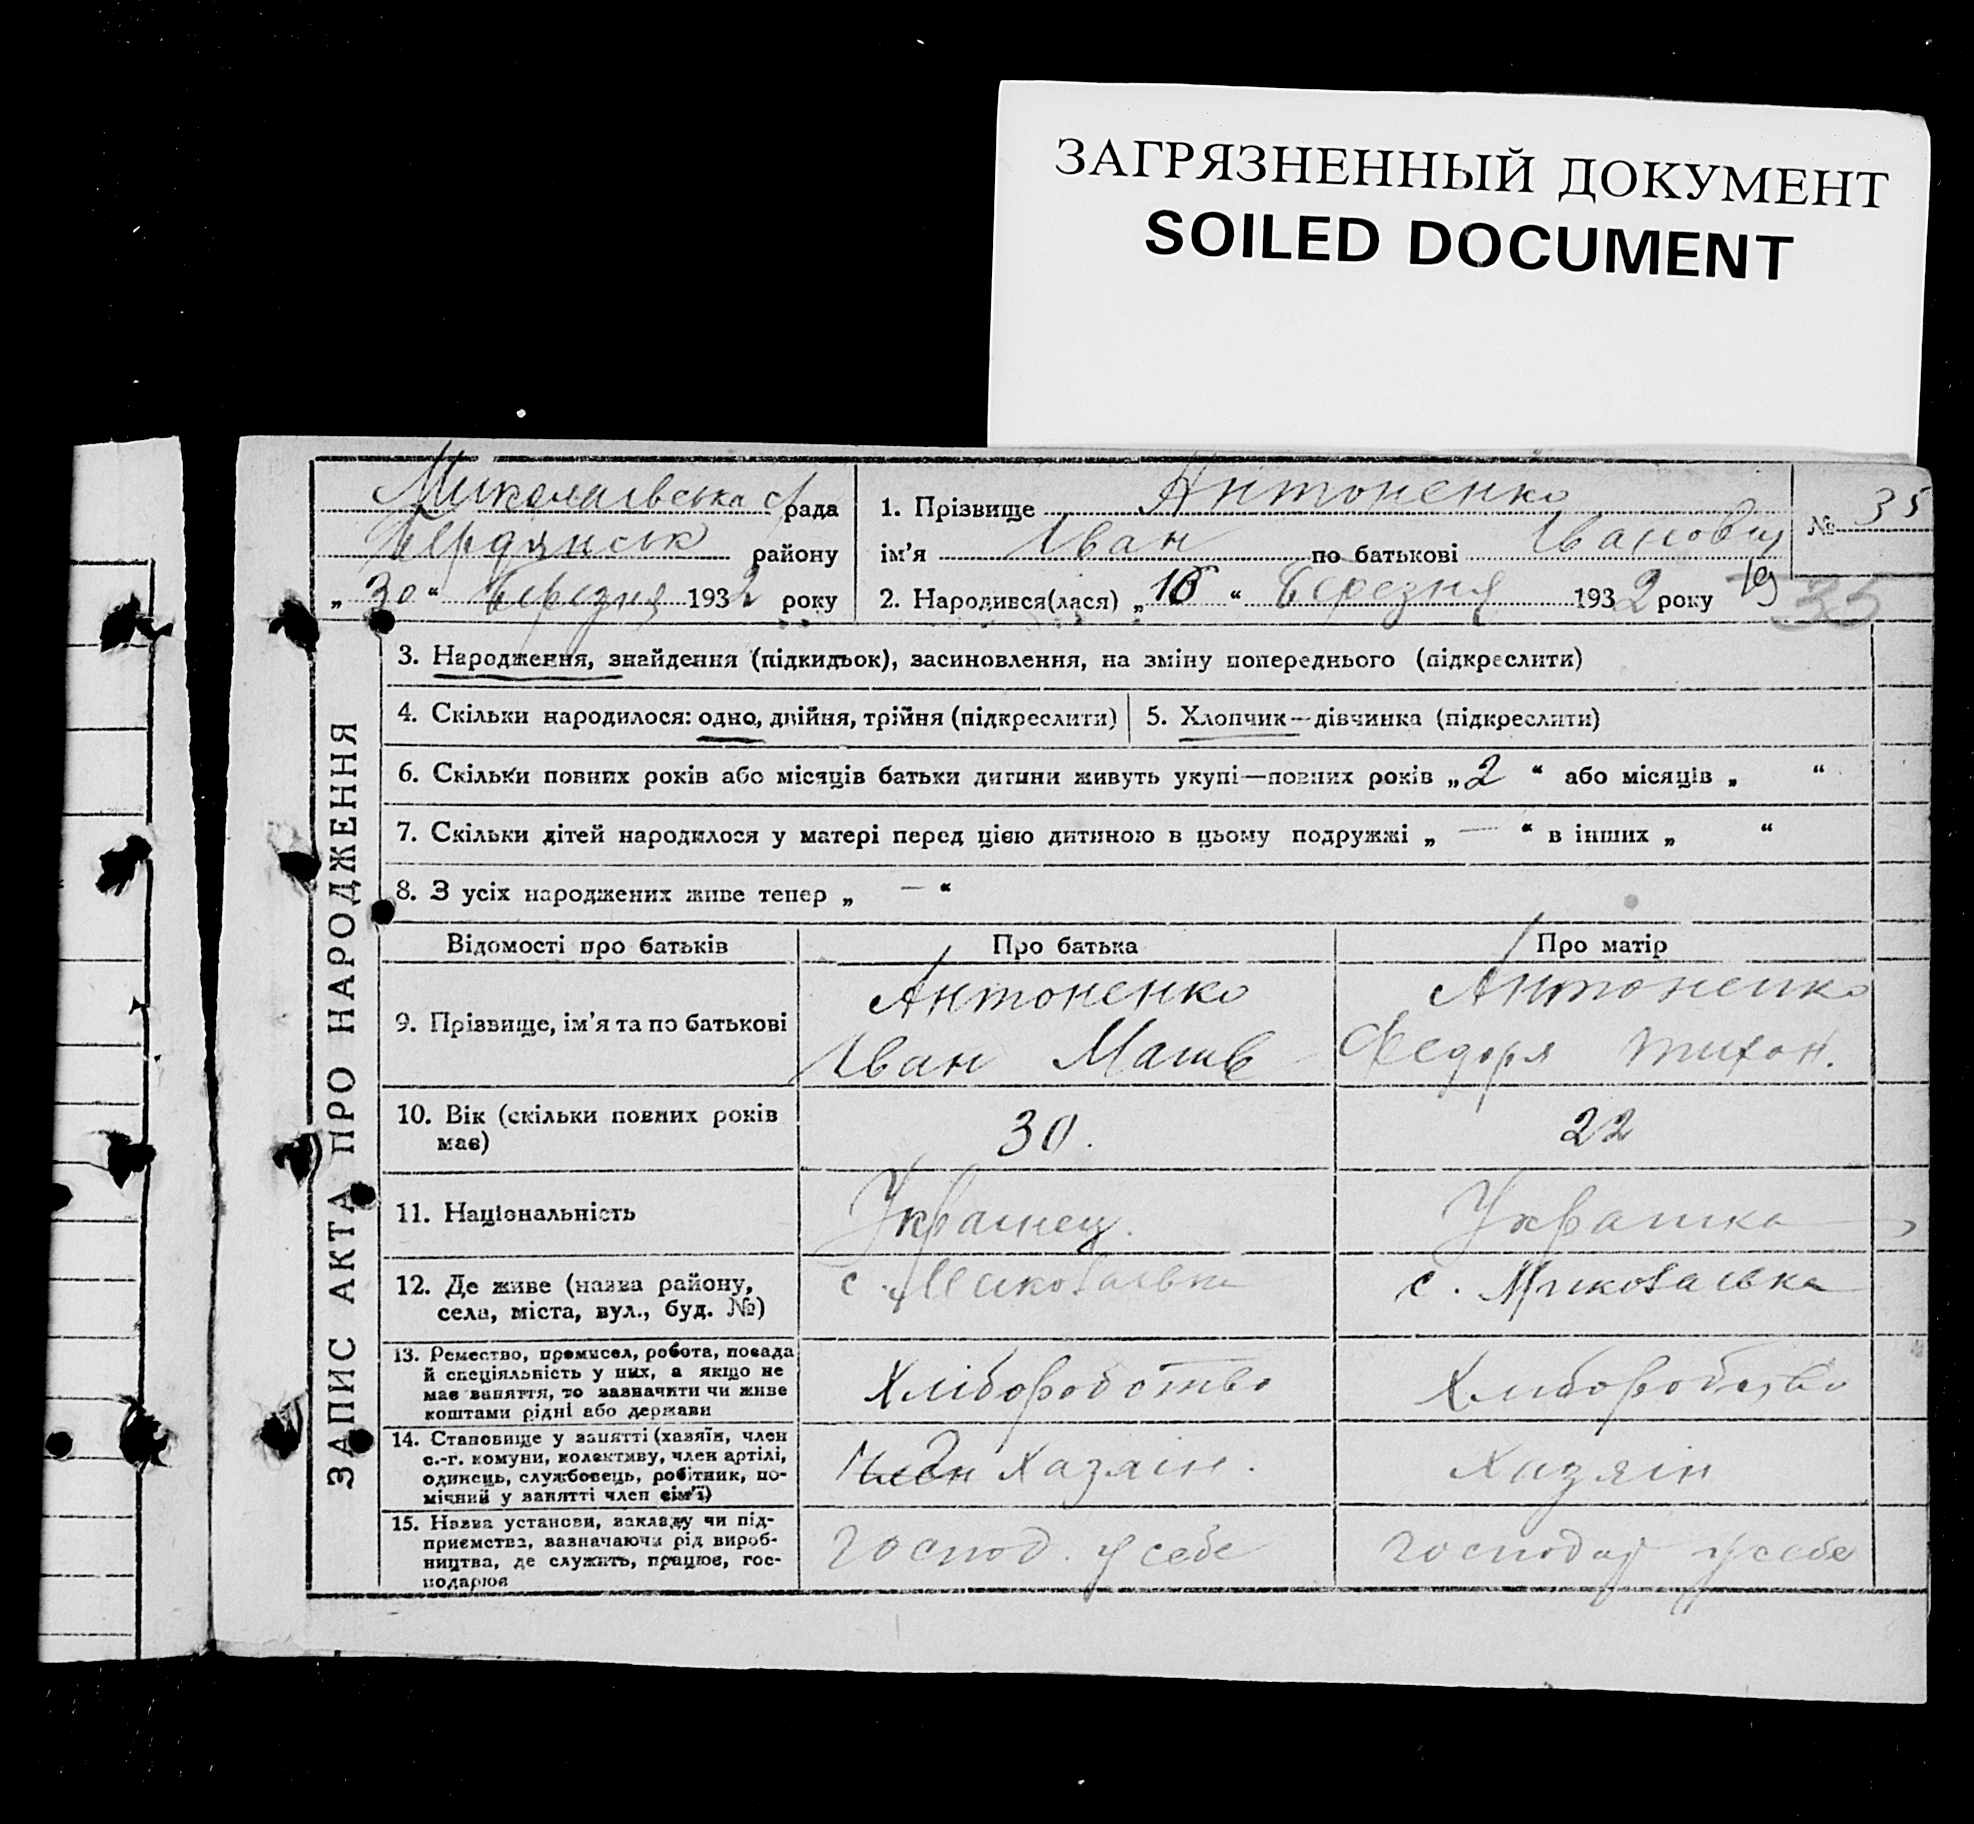 ЗАГРЯЗНЕННЫЙ ДОКУМЕНТ
SOILED DOCUMENT
Миколаївська с/рада
Бердянськ району
„30“ Березня 1932 року
1. Прізвище Антоненко
ім’я Іван по батькові Іванович
2. Народився(лася) „18“ Березня 1932 року
№ 35
35
ЗАПИС АКТА ПРО НАРОДЖЕННЯ
3. Народження, знайдення (підкидьок), засиновлення, на зміну попереднього (підкреслити)
4. Скільки народилося: одно, двійня, трійня (підкреслити)
5. Хлопчик—дівчинка (підкреслити)
6. Скільки повних років або місяців батьки дитини живуть укупі—повних років „2“ або місяців „ “
7. Скільки дітей народилося у матері перед цією дитиною в цьому подружжі „—“ в інших „ “
8. З усіх народжених живе тепер „—“
Відомості про батьків
Про батька
Про матір
9. Прізвище, ім’я та по батькові
Антоненко
Іван Матв
Антоненко
Федоря Тихон.
10. Вік (скільки повних років
має)
30.
22
11. Національність
Українец.
Українка
12. Де живе (назва району,
села, міста, вул., буд. №)
с. Миколаївка
с. Миколаївка
13. Ремество, промисел, робота, посада
й спеціяльність у них, а якщо не
має заняття, то зазначити чи живе
коштами рідні або держави
Хліборобство
Хліборобство
14. Становище у занятті (хазяїн, член
с.-г. комуни, колективу, член артілі,
одинець, службовець, робітник, по-
мічний у занятті член сім’ї)
Член Хазяін.
Хазяін
15. Назва установи, закладу чи під-
приємства, зазначаючи рід вироб-
ництва, де служить, працює, гос-
подарює
Господ. у себе
Господар у себе